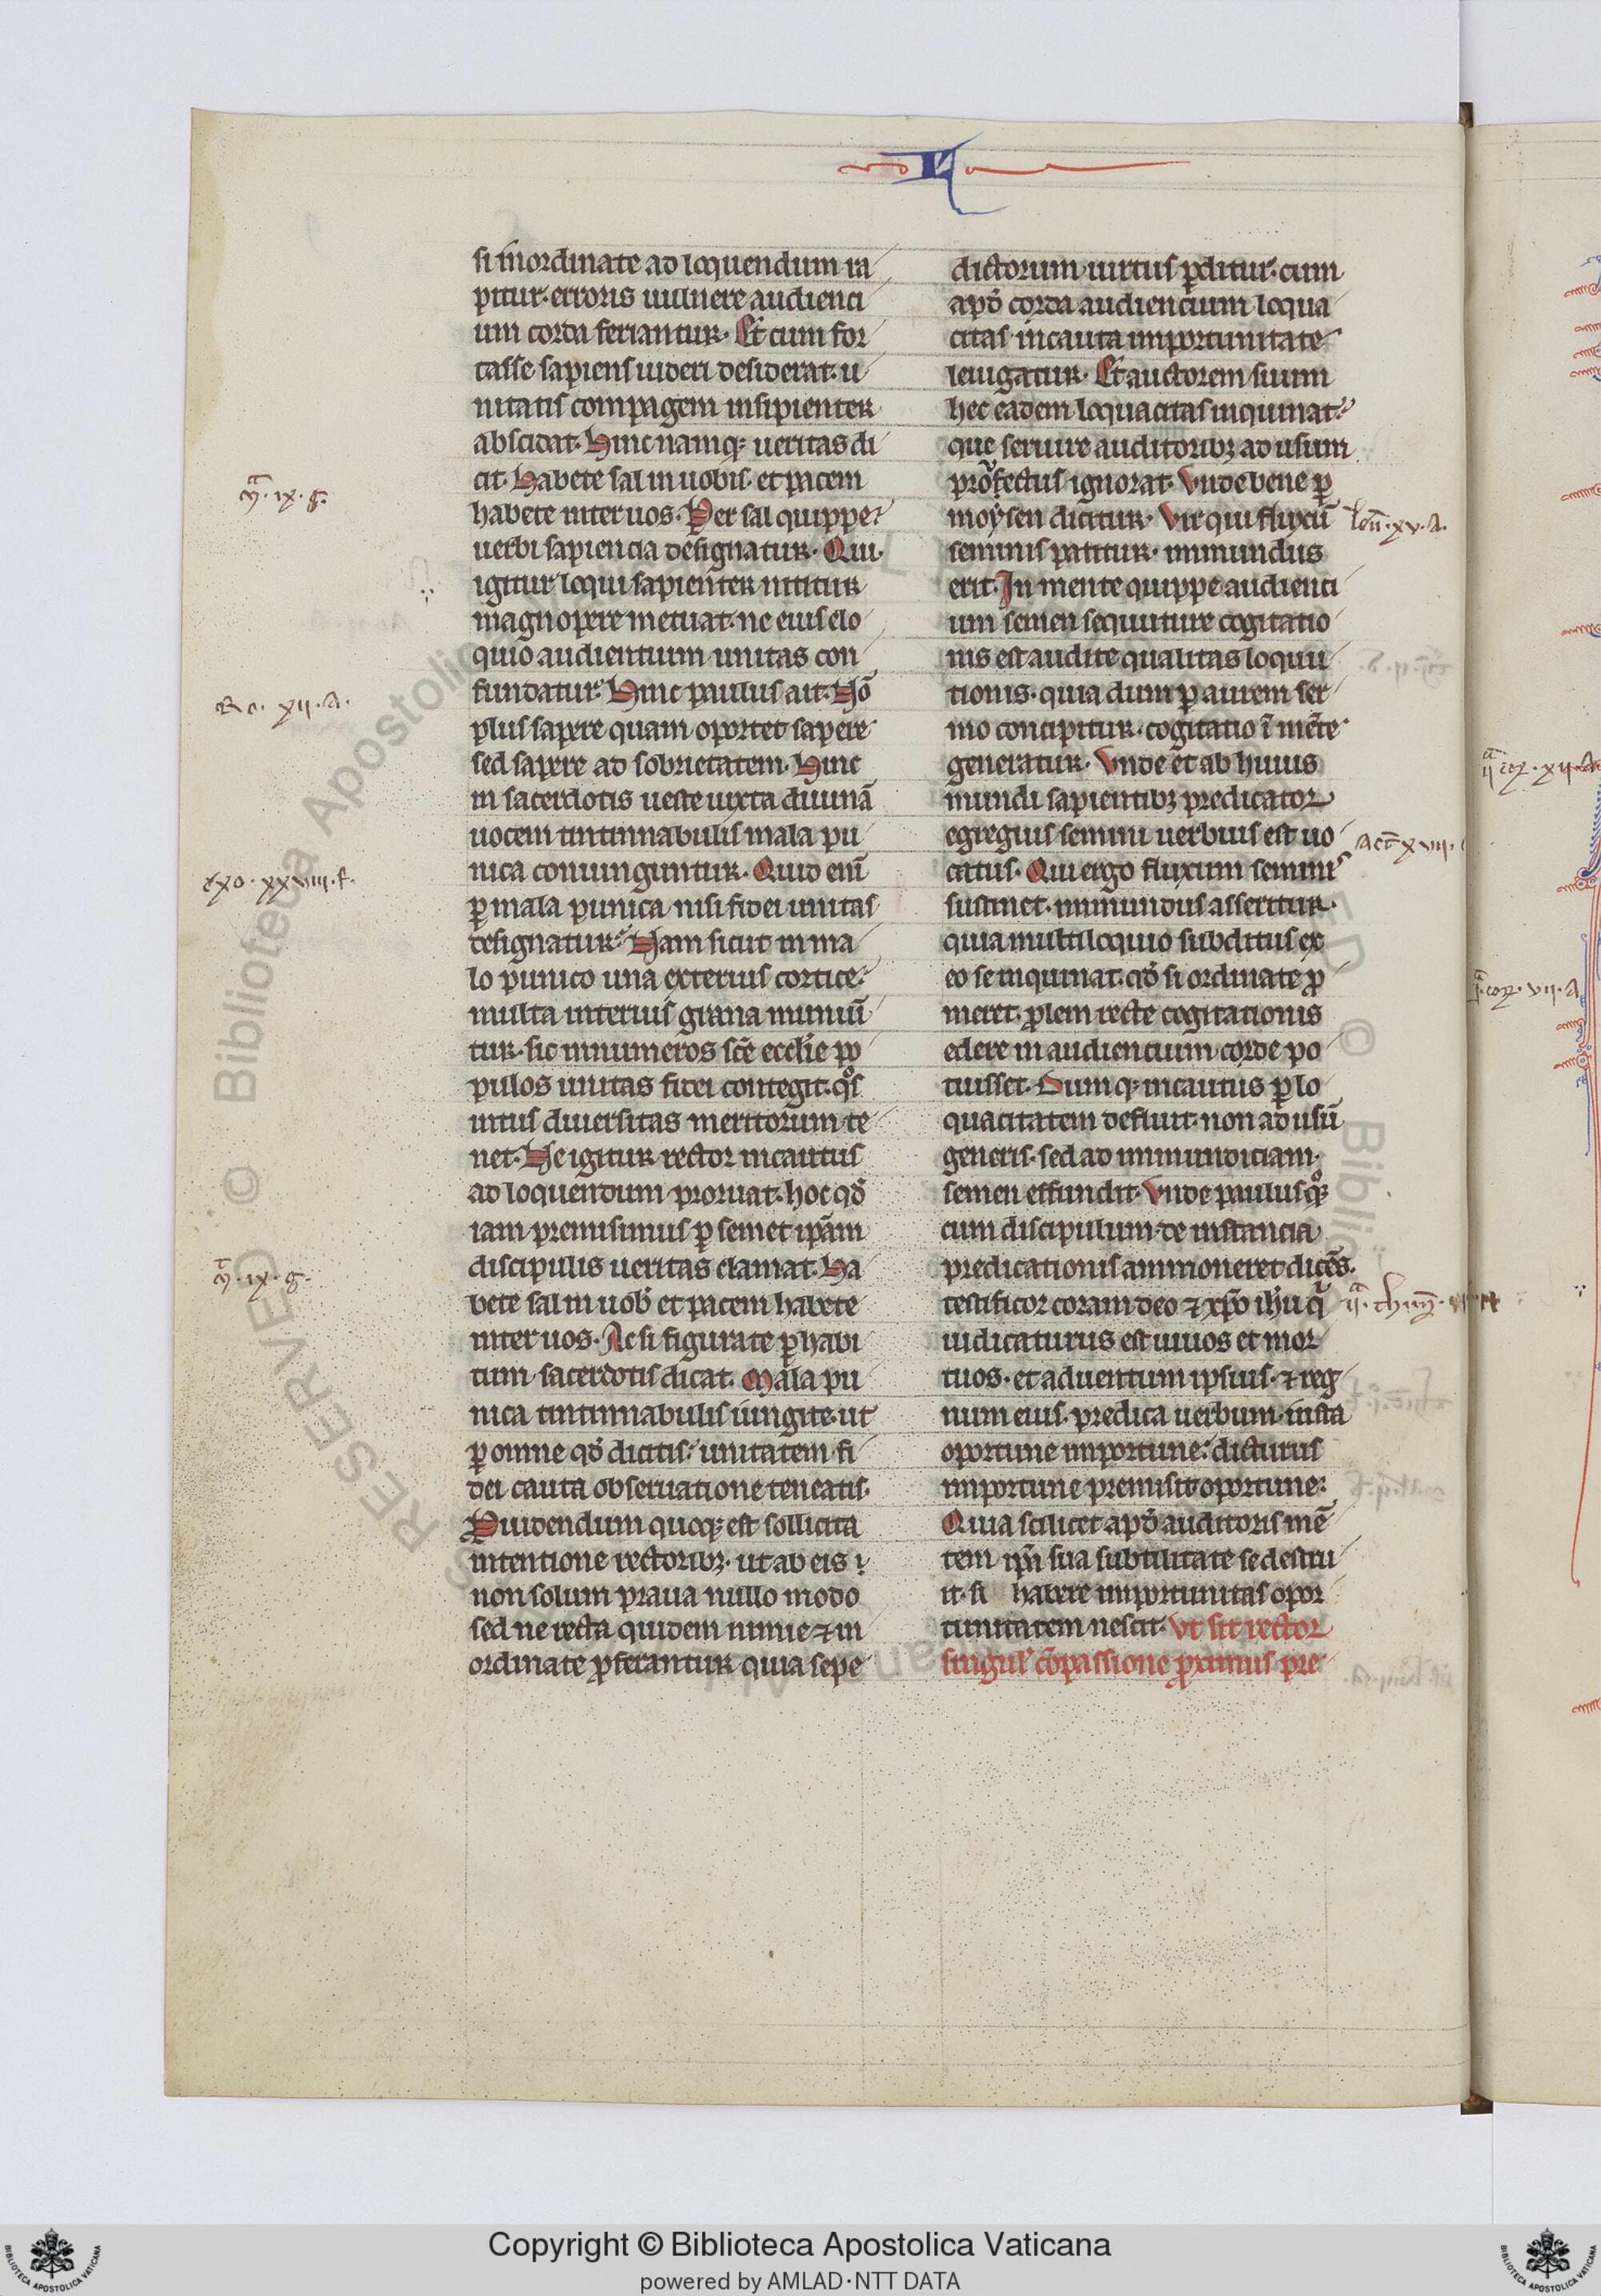 si inordinate ad loquendum ra
pitur· erroris uulnere audienci
um corda feriantur· Et cum for
tasse sapiens uideri desiderat· u
nitatis compagem insipienter
abscidat· Hinc namq; ueritas di
cit· Habete sal in uobis· et pacem
habete inter uos· Per sal quippe
uerbi sapiencia designatur· Qui·
igitur loqui sapienter nititur
magnopere metuat· ne eius elo
quio audientium unitas con
fundatur· Hinc paulus ait· Nō
plus sapere quam oportet sapere
sed sapere ad sobrietatem· Hinc
in sacerdotis ueste iuxta diuinā
uocem tintinnabulis mala pu
nica coniunguntur· Quid eni̅
ꝑ mala punica nisi fidei unitas
designatur· Nam sicut in ma
lo punico una exterius cortice
multa interius grana muniū
tur· sic innumeros sc̅e eccl̅ie po
pulos unitas fidei contegit· qͦs
intus diuersitas meritorum te
net· Ne igitur rector incautus
ad loquendum proruat· hoc qd̅
iam premisimus ꝑ semet ip̅am
discipulis ueritas clamat· Ha
bete sal in uob̅ et pacem habete
inter uos· Ac si figurate ꝑ habi
tum sacerdotis dicat· Mala pu
nica tintinnabulis iungite· ut
ꝑ omne qd̅ dicitis· unitatem fi
dei cauta obseruatione teneatis·
Prouidendum quoq; est sollicita
intentione rectorib; ut ab eis
non solum praua nullo modo
sed ne recta quidem nimie ⁊ in
ordinate ꝓferantur quia sepe
dictorum uirtus ꝑditur· cum
apd̅ corda audiencium loqua
citas incauta importunitate
leuigatur· Et auctorem suum
hec eadem loquacitas inquinat·
que seruire auditorib; ad usum
profectus ignorat· Vnde bene ꝑ
moysen dicitur· Vir qui fluxū
seminis patitur· immundus
erit· In mente quippe audienci
um semen sequuture cogitatio
nis est audite qualitas loquu
tionis· quia dum ꝑ aurem ser
mo concipitur· cogitatio ī mēte
generatur· Vnde et ab huius
mundi sapientib; predicator
egregius semini uerbius est uo
catus· Qui ergo fluxum semiīs
sustinet· immundus asseritur·
quia multiloquio subditus ex
eo se inquinat· qd̅ si ordinate ꝓ
meret· prolem recte cogitationis
edere in audiencium corde po
tuisset· Dumq; incautus ꝑ lo
quacitatem defluit· non ad usū
generis· sed ad immundiciam
semen effundit· Vnde paulus qͦq;
cum discipulum de instancia
predicationis ammoneret dicēs·
testificor coram deo ⁊ xp̅o ih̅u qͥ
iudicaturus est uiuos et mor
tuos· et aduentum ipsius· ⁊ reg
num eius· predica uerbum· insta
oportune importune· dicturus
importune premisit oportune·
Quia scilicet apd̅ auditoris mē
tem ip̅a sua subtilitate se destru
it· si habere importunitas opor
tunitatem nescit· Vt sit rector
singul' cōpassione proximus pre
mͣ· ix· g·
Ro· xii· A·
exo· xxviii· f·
mͣ· ix· g·
leui̅· xv· A·
Act̅ xvii·
iiͣ· thim̅·
iiͣ cor· xii· A
iͣ· cor· vii· A
Copyright © Biblioteca Apostolica Vaticana
powered by AMLAD·NTT DATA